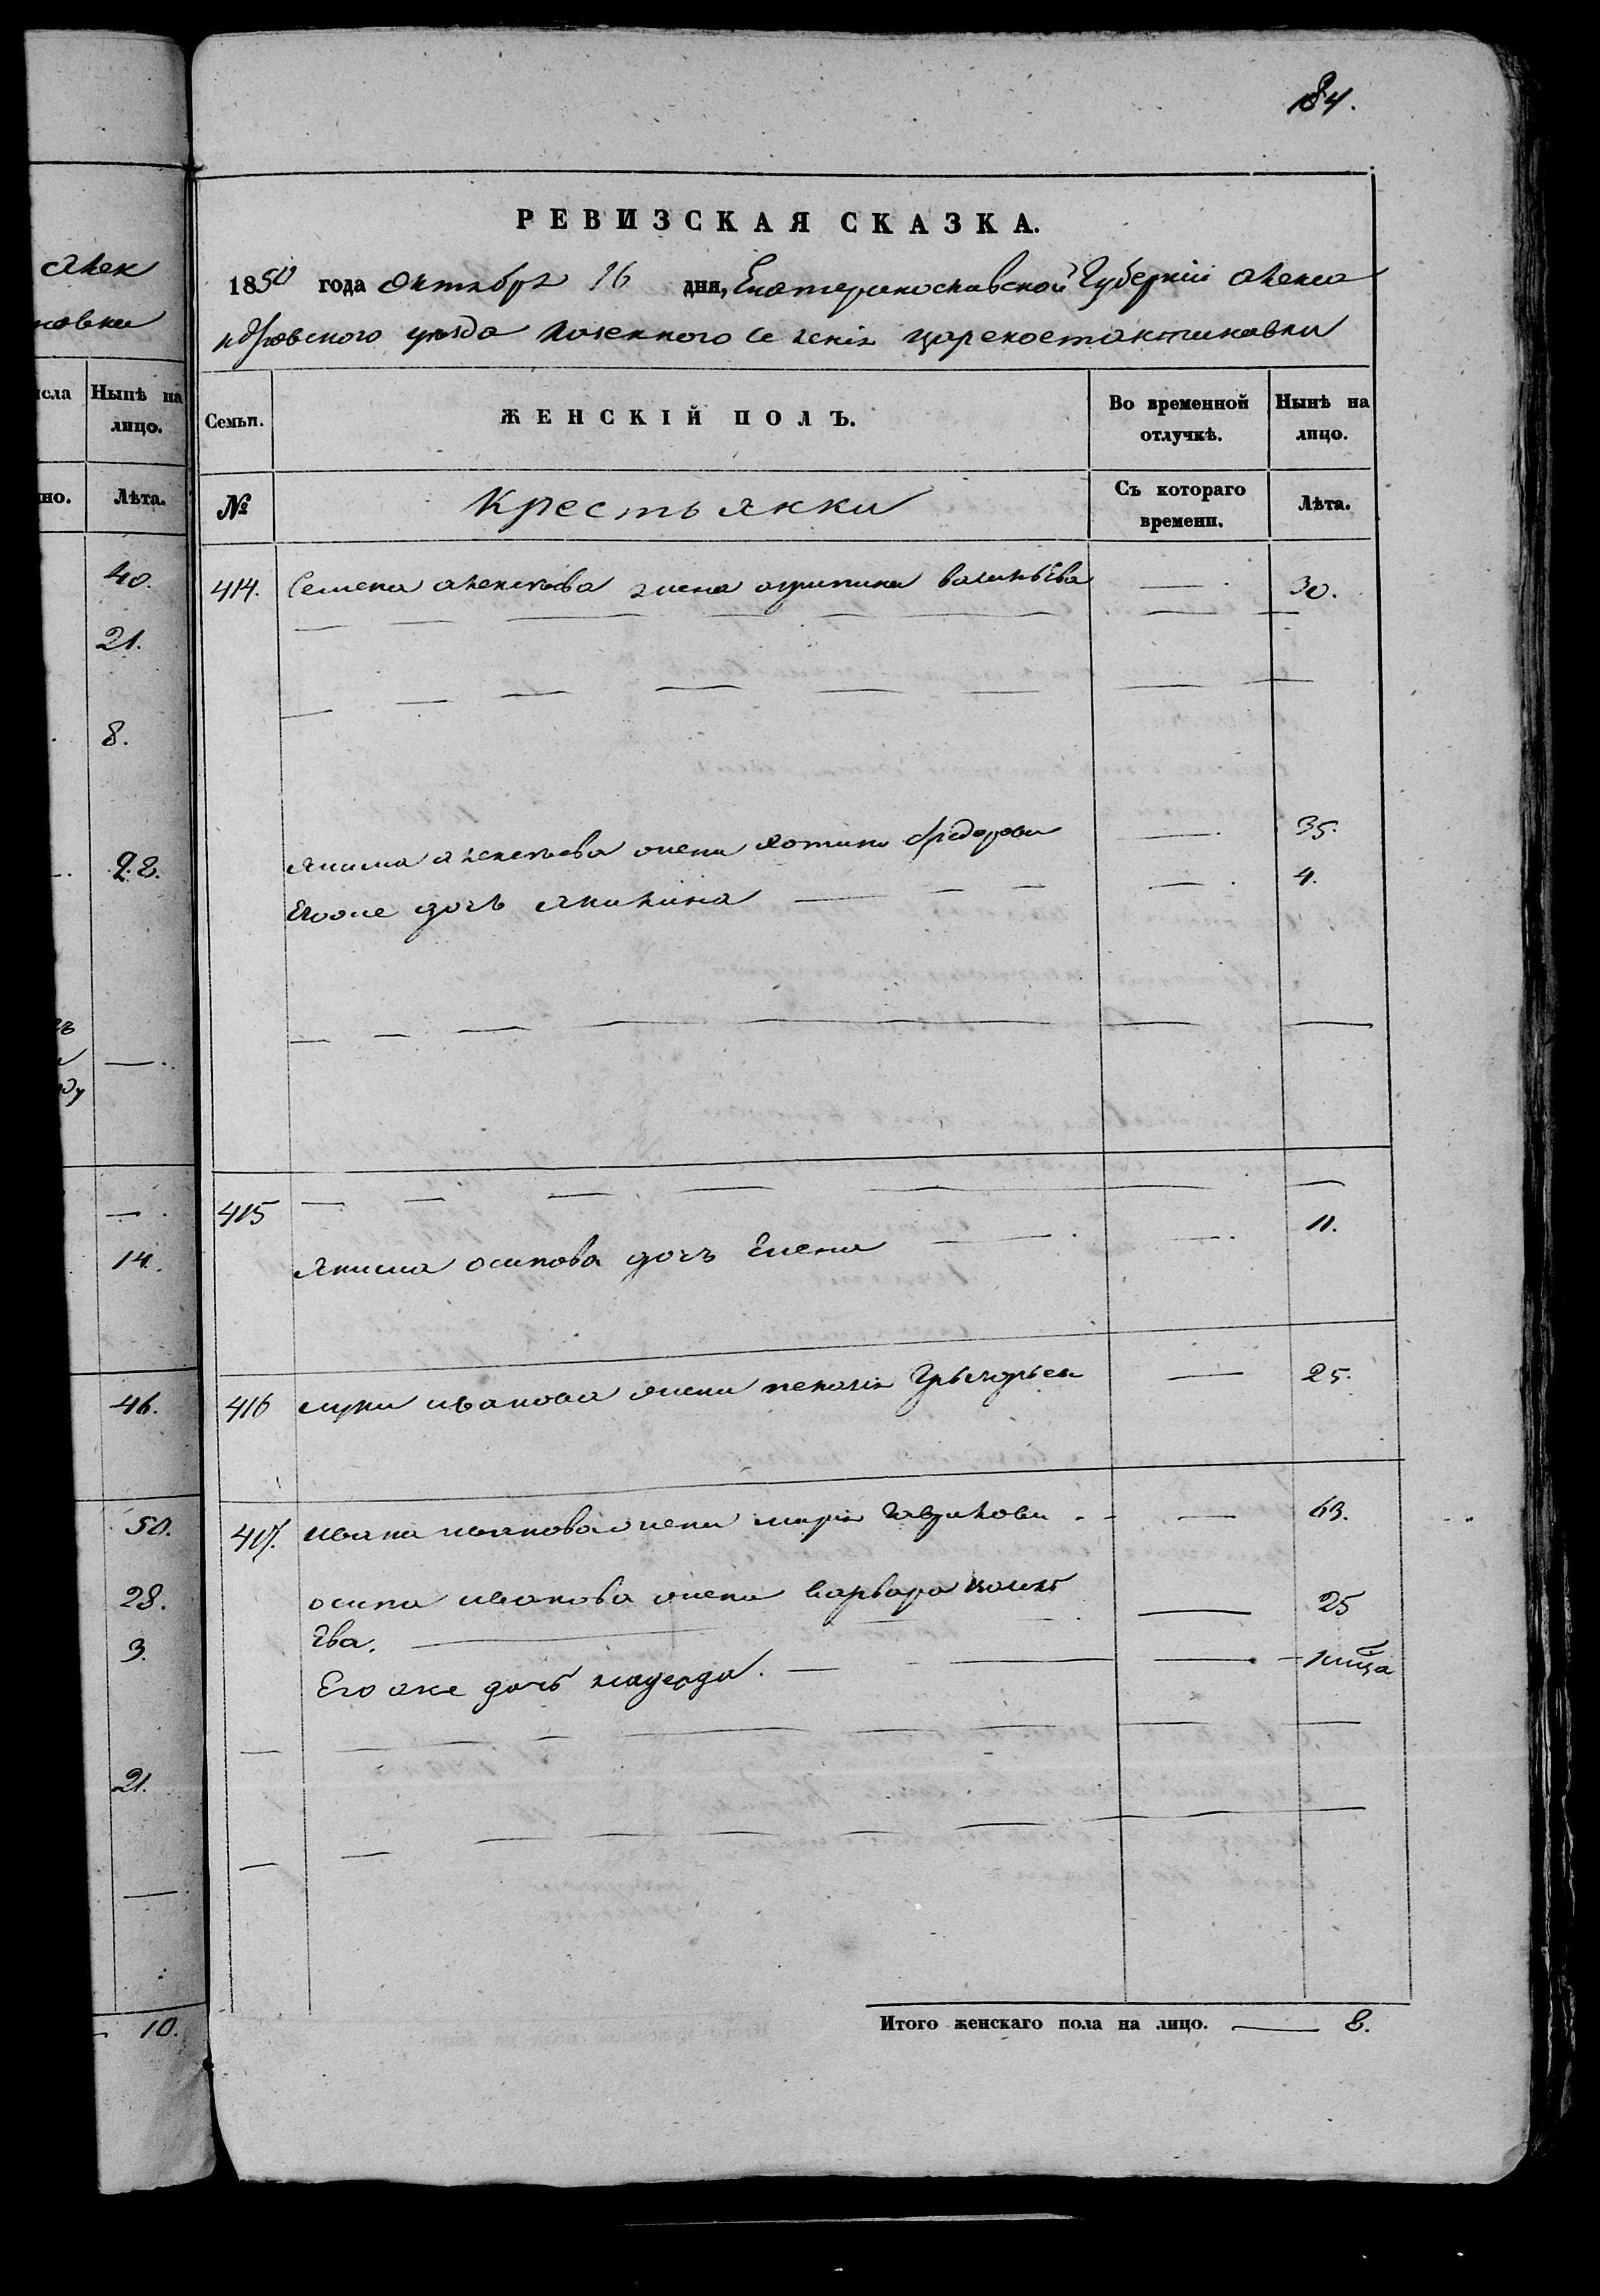 184.
РЕВИЗСКАЯ СКАЗКА.
1850 года Октября 16 дня, Екатеринославской Губернии Алекса
ндровского уезда Казенного Селения Цареконстантиновки
Семьи. ЖЕНСКІЙ ПОЛЪ. Во временной отлучкѣ. Нынѣ на лицо.
№ Крестьянки Съ котораго времени. Лѣта.
414. Семена Алексеева жена Агрипина Васильева — 30.
Якима Алексеева жена Федорова — 35.
Егоже дочь Акилина — 4.
415
Якима Осипова дочь Елена — 11.
416 Луки Иванова жена Пелагия Григорьева — 25.
417. Ивана Иванова жена Мария Гаврилова — 63.
Осипа Иванова жена Варвара
Ева. — 25
Его же дочь —
Итого женскаго пола на лицо. — 8.
Алек
новки
исла Нынѣ на лицо.
но. Лѣта.
40.
21.
8.
28.
14.
46.
50.
28.
3.
21.
10.